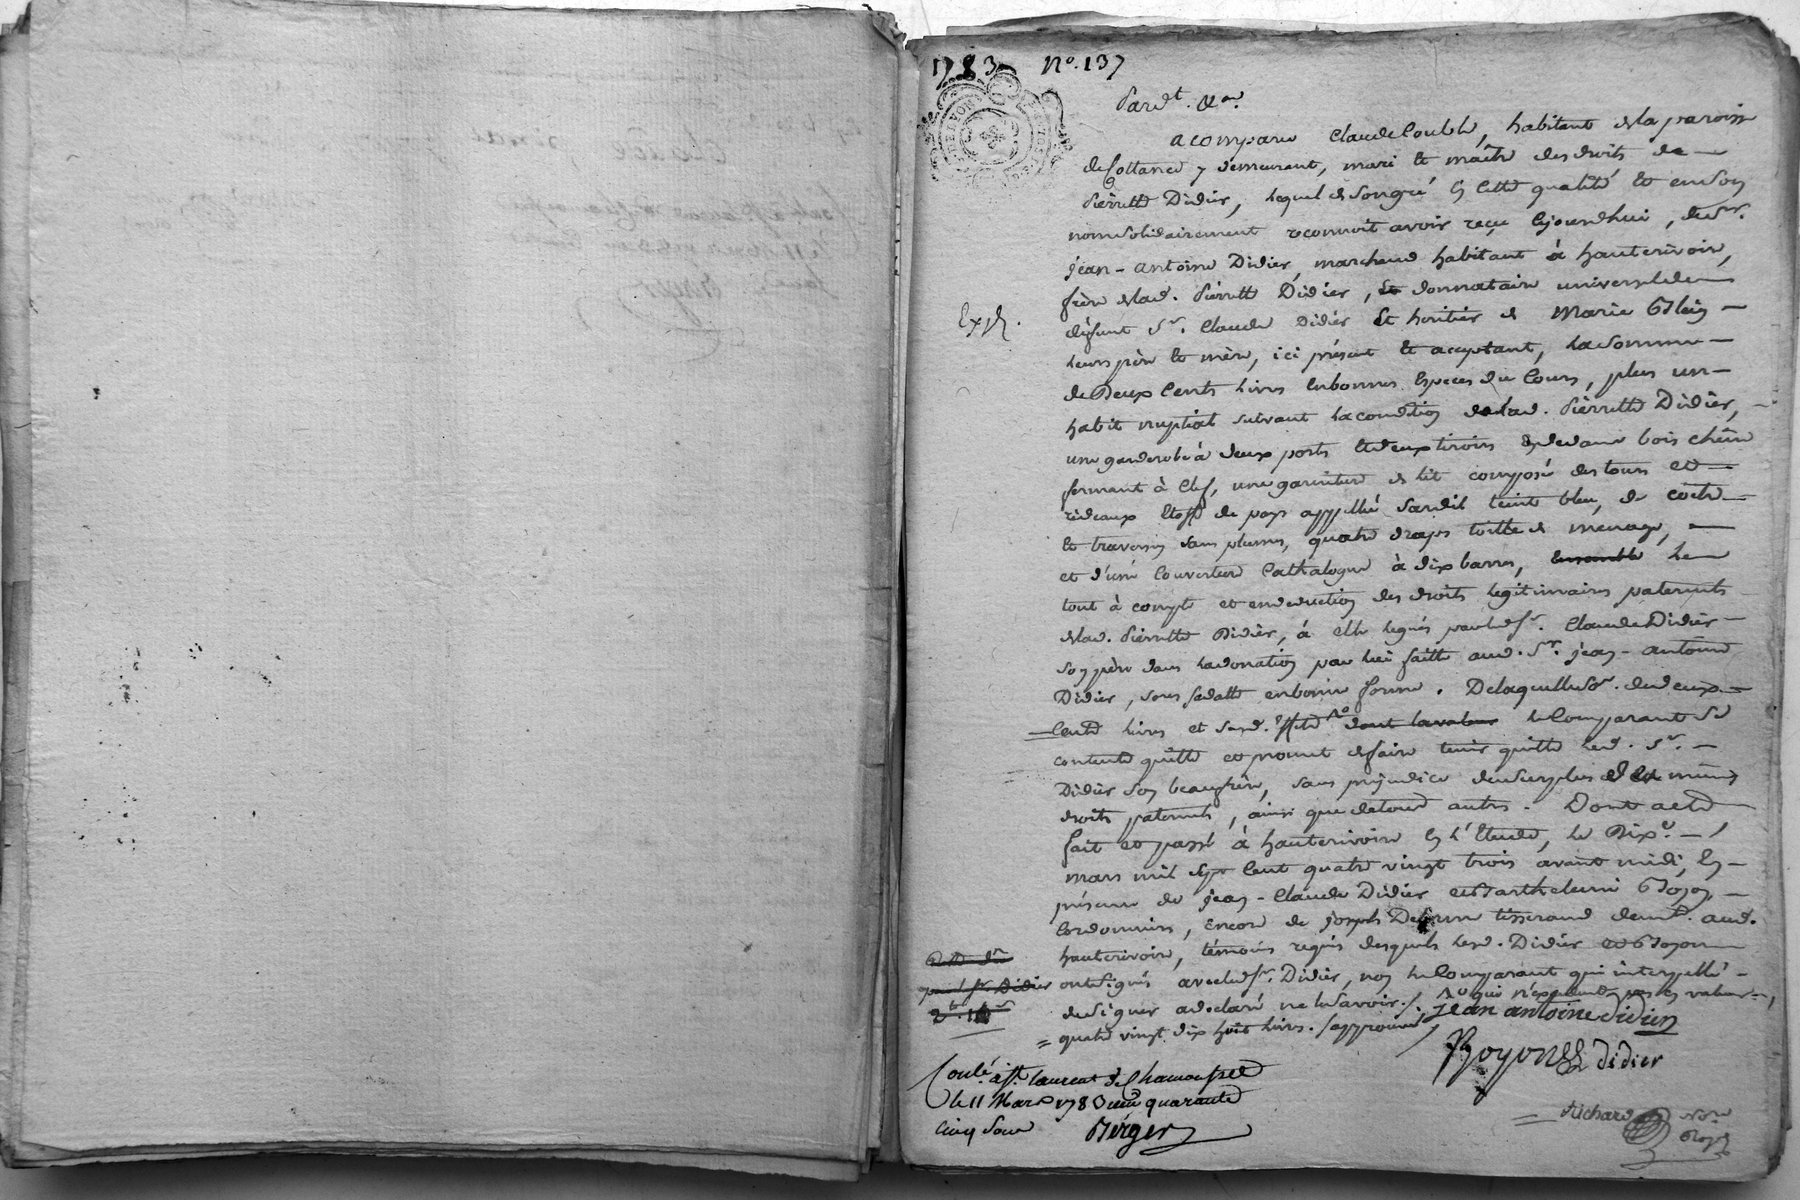 1783 No. 137
Pard.t &a.
a comparu Claude Couble, habitant de la paroisse
de Cottance y demeurant, mari et maître des droits de
Pierrette Didier, lequel de son gré en cette qualité et en son
nom solidairement reconnoit avoir reçu cejourdhui, du Sr.
jean-antoine Didier, marchand habitant à hauterivoire,
frère de lad. Pierrette Didier, et donnataire universel de
défunt Sr. Claude Didier et héritier de Marie
Exp.
leurs père et mère, ici présent et acceptant, la somme
de Deux Cents livres en bonnes Especes du Cours, plus un
habit nuptial suivant la condition de lad. Pierrette Didier,
une garderobe à deux portes et deux tiroirs bois chêne
fermant à Clef, une garniture de lit composé des tours et
rideaux étoffe de pays appellé Sardil teint bleu, de coetre
et traversin sans plumes, quatre draps toille de menage,
et d'une Couverture Cathalogne à dix barres, ensemble le
tout à compte et en déduction des droits légitimaires paternels
de lad. Pierrette Didier, à elle legués par led. Sr. Claude Didier
son père dans la donation par lui faitte aud. Sr. jean-antoine
Didier, sous sa datte en bonne forme. De laquelle so.e de deux
Cents livres et susd. effets dont la valeur le Comparant se
contente quitte et promet de faire tenir quitte led. Sr.
Didier son beaufrère, sans préjudice du surplus de les mêmes
droits paternels, ainsi que de tous autres. Dont acte
fait et passé à hauterivoire en l'Etude, le Dix.e
mars mil sept cent quatre vingt trois avant midi, En
présence de jean-Claude Didier et Barthelemi Boyon,
Cordonniers, encore de joseph tisserand demt. aud.
hauterivoire, témoins requis desquels lesd. Didier et Boyon
ont signés avec led. Sr. Didier, non le Comparant qui interpellé
par led. Sr. Didier
de signer a declaré ne le savoir. qui n'excedent pas en valeur
quatre vingt dix huit livres. approuvé
jean antoine didier
Boyon didier
Conlé. à St. laurent de Chamousset
le 11 Mars 1783 reçu quarante
Cinq sous Berger
Richard Nore
Royal